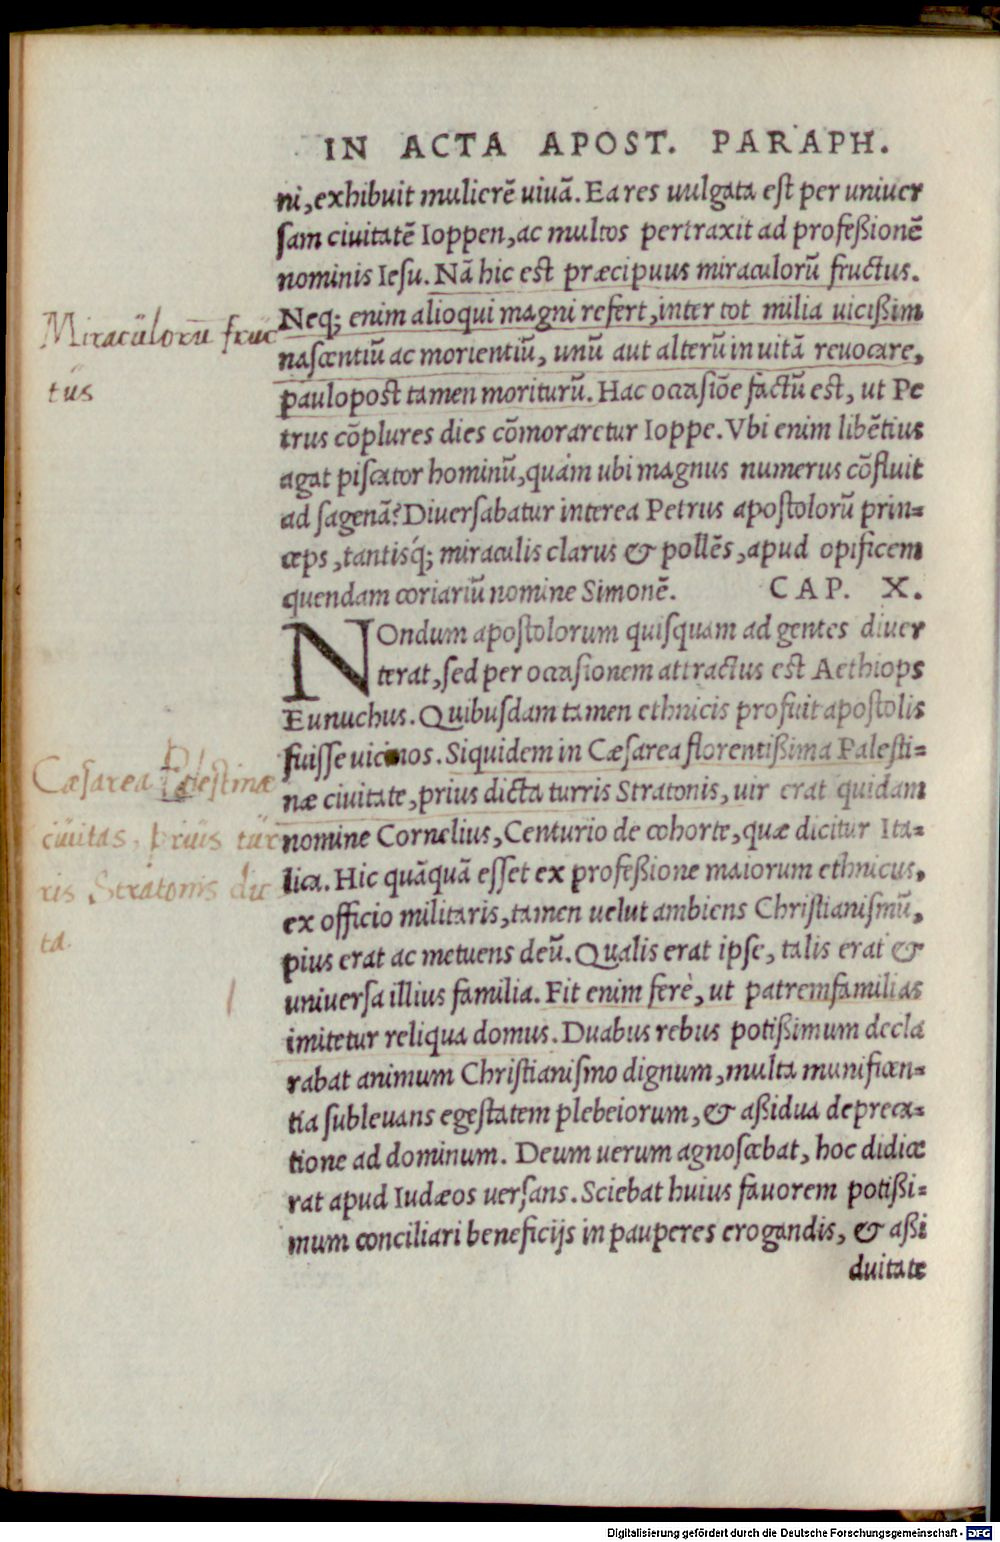 IN ACTA APOST. PARAPH.
ni, exhibuit mulierē viuā. Ea res uulgata est per uniuer
sam ciuitatē Ioppen, ac multos pertraxit ad profeßionē
nominis Iesu. Nā hic est præcipuus miraculorū fructus.
Neq; enim alioqui magni refert, inter tot milia uicißim
nascentiū ac morientiū, unū aut alterū in uitā reuocare,
paulopost tamen moriturū. Hac occasiōe factū est, ut Pe
trus cōplures dies cōmoraretur Ioppe. Vbi enim libētius
agat piscator hominū, quàm ubi magnus numerus cōfluit
ad sagenā? Diuersabatur interea Petrus apostolorū prin=
ceps, tantisq́; miraculis clarus & pollēs, apud opificem
quendam coriariū nomine Simonē. CAP. X.
NOndum apostolorum quisquam ad gentes diuer
terat, sed per occasionem attractus est Aethiops
Eunuchus. Quibusdam tamen ethnicis profuit apostolis
fuisse vicinos. Siquidem in Cæsarea florentißima Palesti=
næ ciuitate, prius dicta turris Stratonis, uir erat quidam
nomine Cornelius, Centurio de cohorte, quæ dicitur Ita=
lica. Hic quāquā esset ex profeßione maiorum ethnicus,
ex officio militaris, tamen uelut ambiens Christianismū,
pius erat ac metuens deū. Qualis erat ipse, talis erat &
uniuersa illius familia. Fit enim ferè, ut patremfamilias
imitetur reliqua domus. Duabus rebus potißimum decla
rabat animum Christianismo dignum, multa munificen=
tia subleuans egestatem plebeiorum, & aßidua depreca=
tione ad dominum. Deum uerum agnoscebat, hoc didice
rat apud Iudæos uersans. Sciebat huius fauorem potißi=
mum conciliari beneficijs in pauperes erogandis, & aßi
duitate
Miraculorū fruc
tus
Cæsarea Palestinæ
ciuitas, prius tur
ris Stratonis dic
ta.
Digitalisierung gefördert durch die Deutsche Forschungsgemeinschaft - DFG